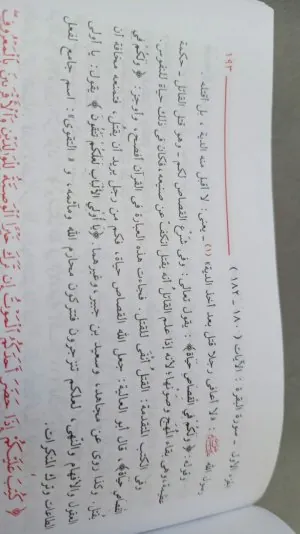 الجزء الأول - سورة البقرة : الآيات ( ١٨٠ - ١٨٢ )
١٩٣
رسول الله ﷺ : «لا أعافي رجلا قتل بعد أخذ الدية» (١) - يعنى: لا أقبل منه الدية ، بل أقتله .
وقوله: ﴿ وَلَكُمْ فِي الْقِصَاصِ حَيَاةٌ ﴾ : يقول تعالى: وفى شرع القصاص لكم - وهو قتل القاتل - حكمة
عظيمة، وهى بقاء المُهَج وصَوْنها؛ لأنه إذا علم القاتل أنه يُقتل انكفّ عن صنيعه، فكان فى ذلك حياة للنفوس.
وفى الكتب المتقدمة: القتل أنْفَى للقتل. فجاءت هذه العبارة فى القرآن أفصح، وأوجز: ﴿ وَلَكُمْ فِي
الْقِصَاصِ حَيَاةٌ ﴾. قال أبو العالية: جعل الله القصاص حياة، فكم من رجل يريد أن يقتُل، فتمنعه مخافة أن
يُقتل. وكذا روى عن مجاهد، وسعيد بن جبير، وغيرهما. ﴿ يَا أُولِي الأَلْبَابِ لَعَلَّكُمْ تَتَّقُونَ ﴾ يقول: يا أولى
العقول والأفهام والنهى، لعلكم تنزجرون فتتركون محارم الله ومآثمه، و « التقوى»: اسم جامع لفعل
الطاعات وترك المنكرات.
﴿ كُتِبَ عَلَيْكُمْ إِذَا حَضَرَ أَحَدَكُمُ الْمَوْتُ إِن تَرَكَ خَيْرًا الْوَصِيَّةُ لِلْوَالِدَيْنِ وَالْأَقْرَبِينَ بِالْمَعْرُوفِ